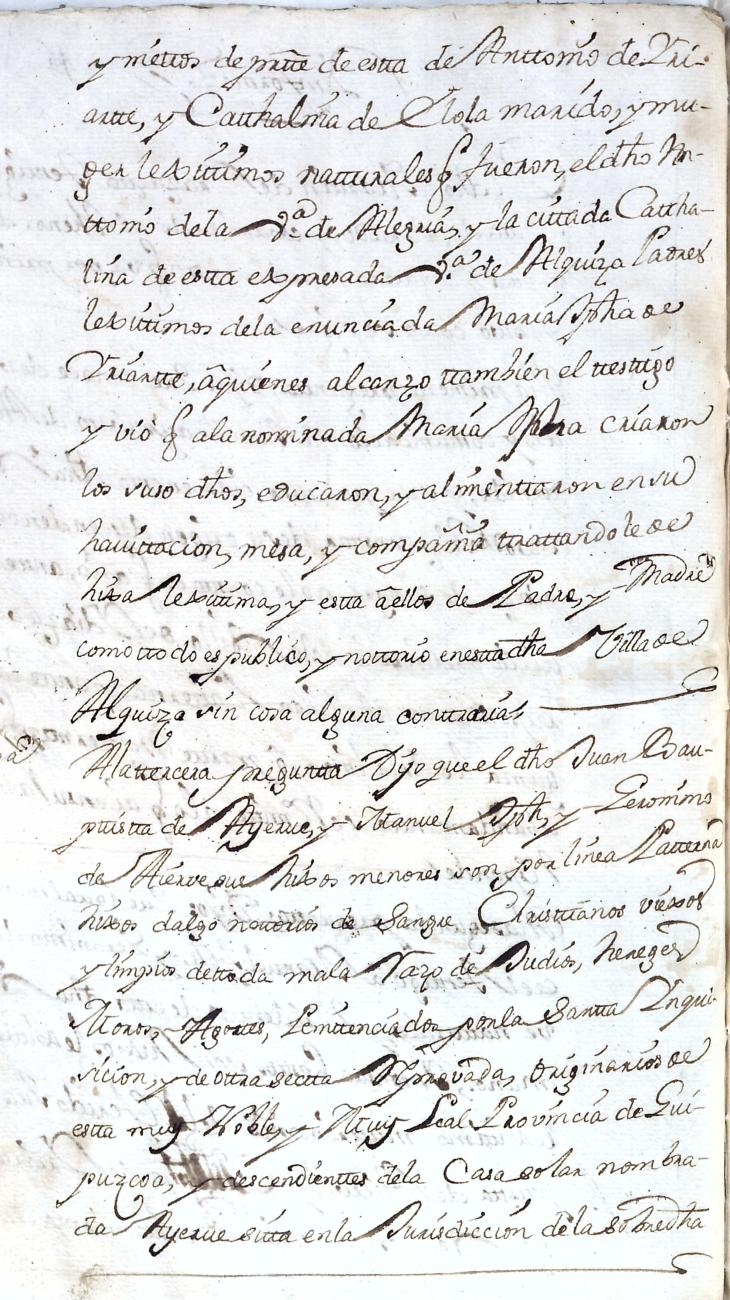 y nietos de partte de estta de Anttonio de Vri-
artte, y Catthalina de Elola marido, y mu-
ger lexittimos natturales q fueron, el dho An-
ttonio de la V.ª de Alegria, y la cittada Cattha-
lina de estta expresada V.ª de Alquiza Padres
lexittimos de la enunciada Maria Jpha de
Vriartte, a quienes alcanzo ttambien el ttesttigo
y vio q a la nominada Maria Jpha criaron
los suso dhos, educaron, y alimenttaron en su
havittacion, mesa, y compañia ttrattandole de
hixa lexittima, y estta a ellos de Padre, y Madre
como ttodo es publico, y nottorio en estta dha Villa de
Alquiza sin cosa alguna conttraria
A la ttercera preguntta Dijo que el dho Juan Bau-
ptistta de Ayerve, y Manuel Jph, y Geronimo
de Aierve sus hixos menores son por linea Patterna
hixos dalgo nottorios de Sangre Christtianos viexos
y limpios de ttoda mala Razo de Judios, hereges
Moros, Agottes, Penittenciados por la Santta Ynqui-
sicion, y de ottra sectta Reprovada, originarios de
estta muy Noble, y Muy Leal Provincia de Gui-
puzcoa, y descendienttes de la Casa solar nombra-
da Ayerve sitta en la Jurisdiccion de la sobredha